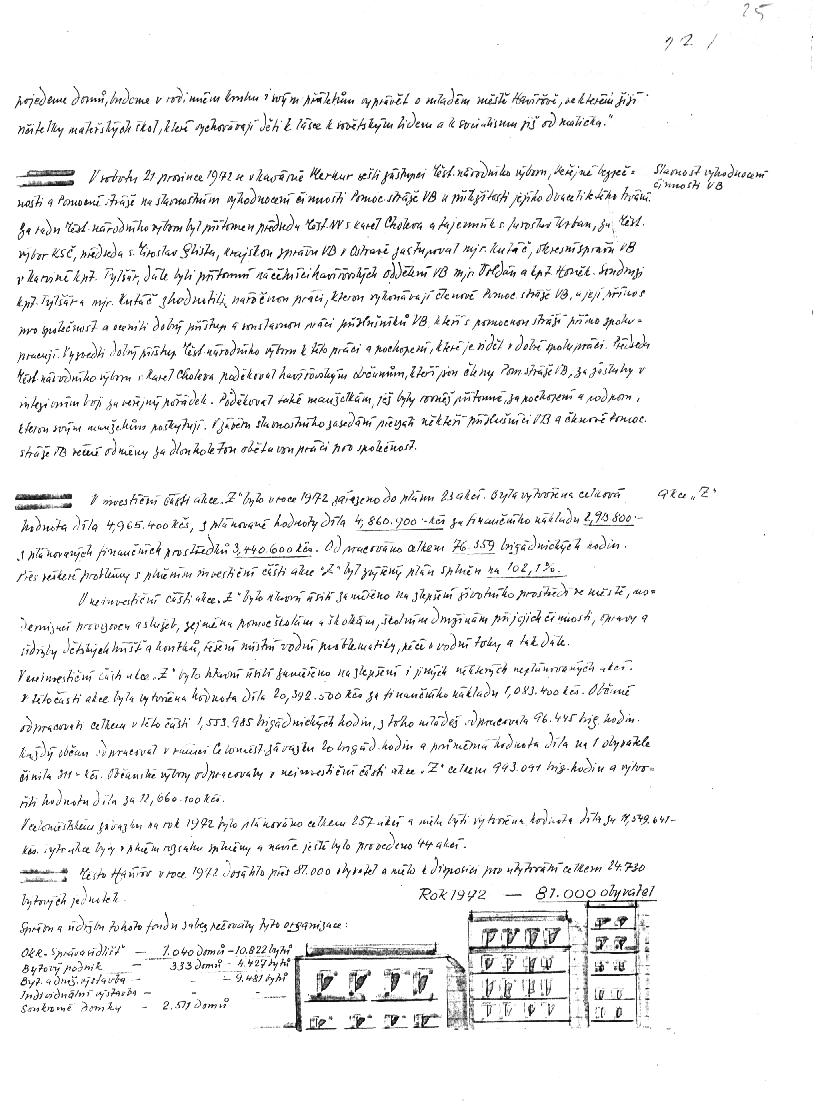 25
92 /
pojedeme domů, budeme v rodinném kruhu i svým přátelům vyprávět o mladém městě Havířově, ve kterém žijí
učitelky mateřských škol, které vychovávají děti k lásce k sovětským lidem a k socialismu již od malička."
V sobotu 21 prosince 1972 se v kavárně Merkur sešli zástupci Měst. národního výboru, Veřejné bezpeč=
Slavnost vyhodnocení
nosti a Pomocné stráže na slavnostním vyhodnocení činnosti Pomoc. stráže VB u příležitosti jejího dvacetiletého trvání.
činnosti VB
Za radu Měst. národního výboru byl přítomen předseda Měst. NV s. Karel Choleva a tajemník s. Jaroslav Urban, za Měst.
výbor KSČ, předseda s. Miroslav Glista, krajskou správu VB v Ostravě zastupoval mjr. Kuták, okresní správu VB
v Karviné kpt. Tylšar, dále byli přítomni náčelníci havířovských oddělení VB mjr. Voldán a kpt. Soudruzi
kpt. Tylšar a mjr. Kuták zhodnotili náročnou práci, kterou vykonávají členové Pomoc. stráže VB, a její přínos
pro společnost a ocenili dobrý přístup a soustavnou práci příslušníků VB, kteří s pomocnou stráží přímo spolu=
pracují. Vyzvedli dobrý přístup Měst. národního výboru k této práci a pochopení, které je vidět v dobré spolupráci. Předseda
Měst. národního výboru s. Karel Choleva poděkoval havířovským občanům, kteří jsou členy Pom. stráže VB, za zásluhy v
intezivním boji za veřejný pořádek. Poděkoval také manželkám, jež byly rovněž přítomné, za pochopení a podporu,
kterou svým manželům poskytují. V závěru slavnostního zasedání převzali někteří příslušníci VB a členové Pomoc.
stráže VB věcné odměny za dlouholetou obětavou práci pro společnost.
V investiční části akce „Z" bylo v roce 1972 zařazeno do plánu 23 akcí. Byla vytvořena celková
akce „Z"
hodnota díla 4,965.400 kčs, z plánované hodnoty díla 4,860.700.- kčs za finančního nákladu 2,93.800.-
z plánovaných finančních prostředků 3,440.600 kčs. Odpracováno celkem 76.359 brigádnických hodin.
Přes veškeré problémy s plněním investiční části akce "Z" byl zvýšený plán splněn na 102,1%.
V neinvestiční části akce „Z" bylo hlavní úsilí zaměřeno na zlepšení životního prostředí ve městě, mo=
dernizaci provozoven a služeb, zejména pomoc školám a školkám, školním družinám při jejich činnosti, opravy a
údržby dětských hřišť a koutků, řešení místní vodní problematiky, péče o vodní toky a tak dále.
V neinvestiční části akce „Z" bylo hlavní úsilí zaměřeno na zlepšení i jiných některých neplánovaných akcí.
V této části akce byla vytvořena hodnota díla 20,392.500 kčs za finančního nákladu 1,083.400 kčs. Občané
odpracovali celkem v této části 1,553.985 brigádnických hodin, z toho mládež odpracovala 96.445 brig. hodin.
Každý občan odpracoval v rámci celoměst. závazku 20 brigád. hodin a průměrná hodnota díla na 1 obyvatele
činila 311.- kčs. Občanské výbory odpracovaly v neinvestiční části akce „Z" celkem 993.091 brig. hodin a vytvo=
řili hodnotu díla za 12,660.100 kčs.
V celoměstském závazku na rok 1972 bylo plánováno celkem 257 akcí a měla býti vytvořena hodnota díla za 17,549.641.-
kčs. Tyto akce byly v plném rozsahu splněny a navíc ještě bylo provedeno 44 akcí.
Město Havířov v roce 1972 dosáhlo přes 81.000 obyvatel a mělo k disposici pro ubytování celkem 24.730
bytových jednotek.
Rok 1972 — 81.000 obyvatel
Správu a údržbu tohoto fondu zabezpečovaly tyto organizace:
OKR - Správa sídlišť — 1.040 domů - 10.822 bytů
Bytový podnik — 333 domů - 4.427 bytů
Byt. a druž. výstavba — - 9.481 bytů
Individuální výstavba —
Soukromé domky — 2.571 domů